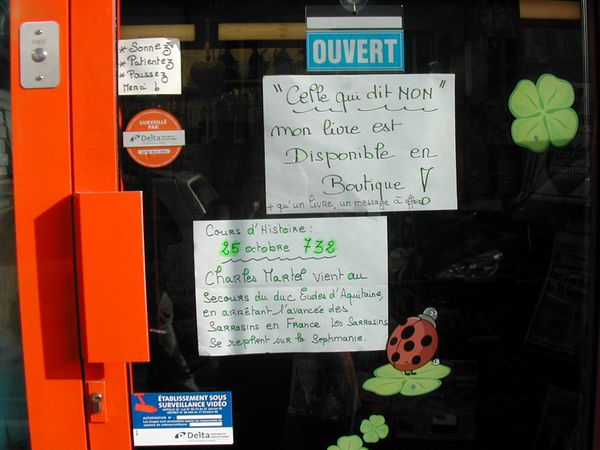 OUVERT
* Sonnez
* Patientez
* Poussez
Merci !
SURVEILLÉ
PAR
Delta
"Celle qui dit NON"
mon livre est
Disponible en
Boutique !
+ qu'un livre, un message à offrir
Cours d'Histoire :
25 octobre 732
Charles Martel vient au
Secours du duc Eudes d'Aquitaine,
en arrêtant l'avancée des
Sarrasins en France. Les Sarrasins
Se replient sur la Septimanie.
ÉTABLISSEMENT SOUS
SURVEILLANCE VIDÉO
Delta